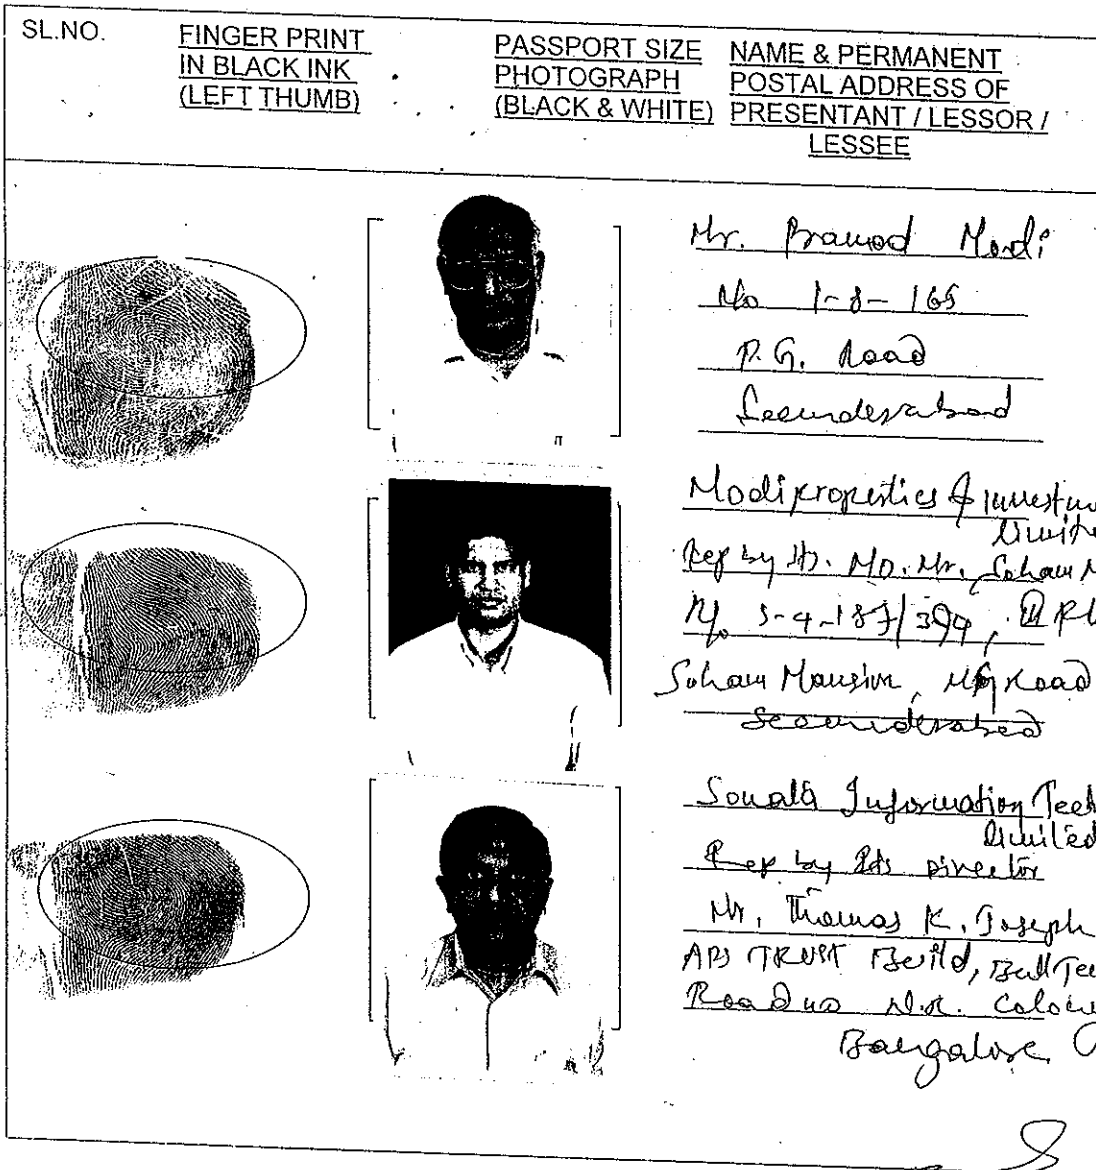 SL.NO.
FINGER PRINT
IN BLACK INK
(LEFT THUMB)
PASSPORT SIZE
PHOTOGRAPH
(BLACK & WHITE)
NAME & PERMANENT
POSTAL ADDRESS OF
PRESENTANT / LESSOR /
LESSEE
Mr. Pramod Modi
No 1-8-165
P.G. Road
Secunderabad
Modi properties &
Rep by its. MD. Mr. Soham
Soham Mansion, MG Road
Secunderabad
Sonata Information Tech
Limited
Rep by Its Director
Mr. Thomas K. Joseph
APS TRUST Build, Bull Tem
Road N.R. Colony
Bangalore